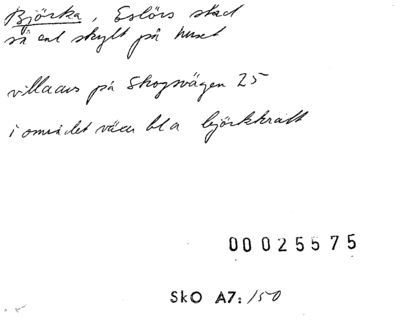 Björka, Eslövs stad
så enl skylt på huset
villans på Skogsvägen 25
i området växer bl a björkkratt
00025575
SkO A7: 150